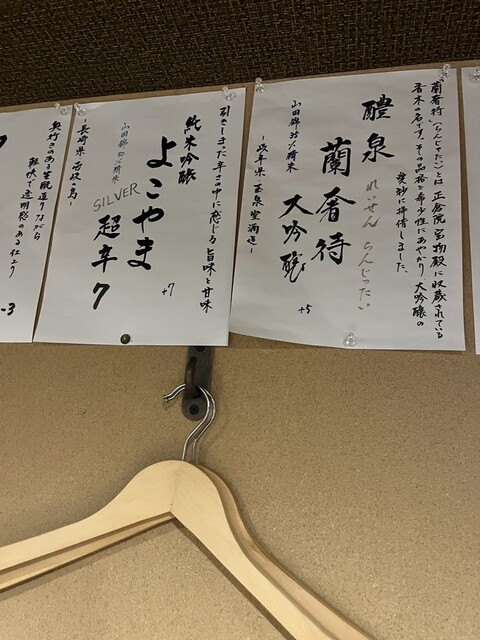 「蘭奢待」(らんじゃたい)とは正倉院宝物殿に収蔵されている
香木の名です。その品格と希少性にあやかり、大吟醸の
愛称に拝借しました。
醴泉 れいせん
蘭奢待 らんじゃたい
大吟醸 +5
山田錦35%精米
-岐阜県・玉泉堂酒造-
引きしまった辛の中に感じる旨味と甘味
純米吟醸 +7
よこやま
SILVER 超辛7
山田錦50%精米
-長崎県・壱岐の島-
奥行きのある生酛造りながら
軽快で透明感のある仕上り
-3